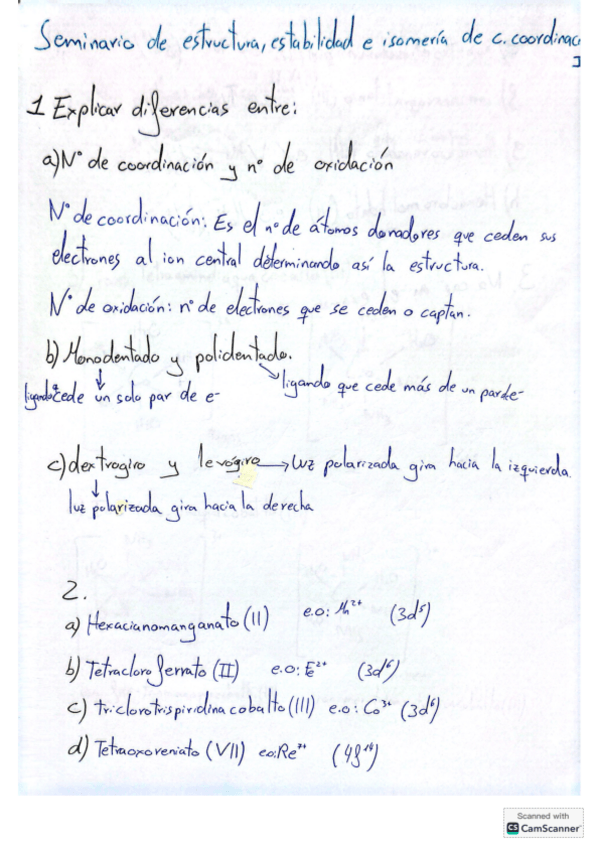 Seminario de estructura, estabilidad e isomería de c. coordinac
1 Explicar diferencias entre:
a) Nº de coordinación y nº de oxidación
Nº de coordinación: Es el nº de átomos donadores que ceden sus
electrones al ion central determinando así la estructura.
Nº de oxidación: nº de electrones que se ceden o captan.
b) Monodentado y polidentado.
ligando cede un solo par de e-
ligando que cede más de un par de-
c) dextrogiro y levógiro → luz polarizada gira hacia la izquierda.
luz polarizada gira hacia la derecha
2.
a) Hexacianomanganato (II) e.o: Mn²⁺ (3d⁵)
b) Tetracloro ferrato (II) e.o: Fe²⁺ (3d⁶)
c) triclorotrispiridina cobalto (III) e.o: Co³⁺ (3d⁶)
d) Tetraoxoreniato (VII) eo: Re⁷⁺ (4f¹⁴)
Scanned with
CS CamScanner